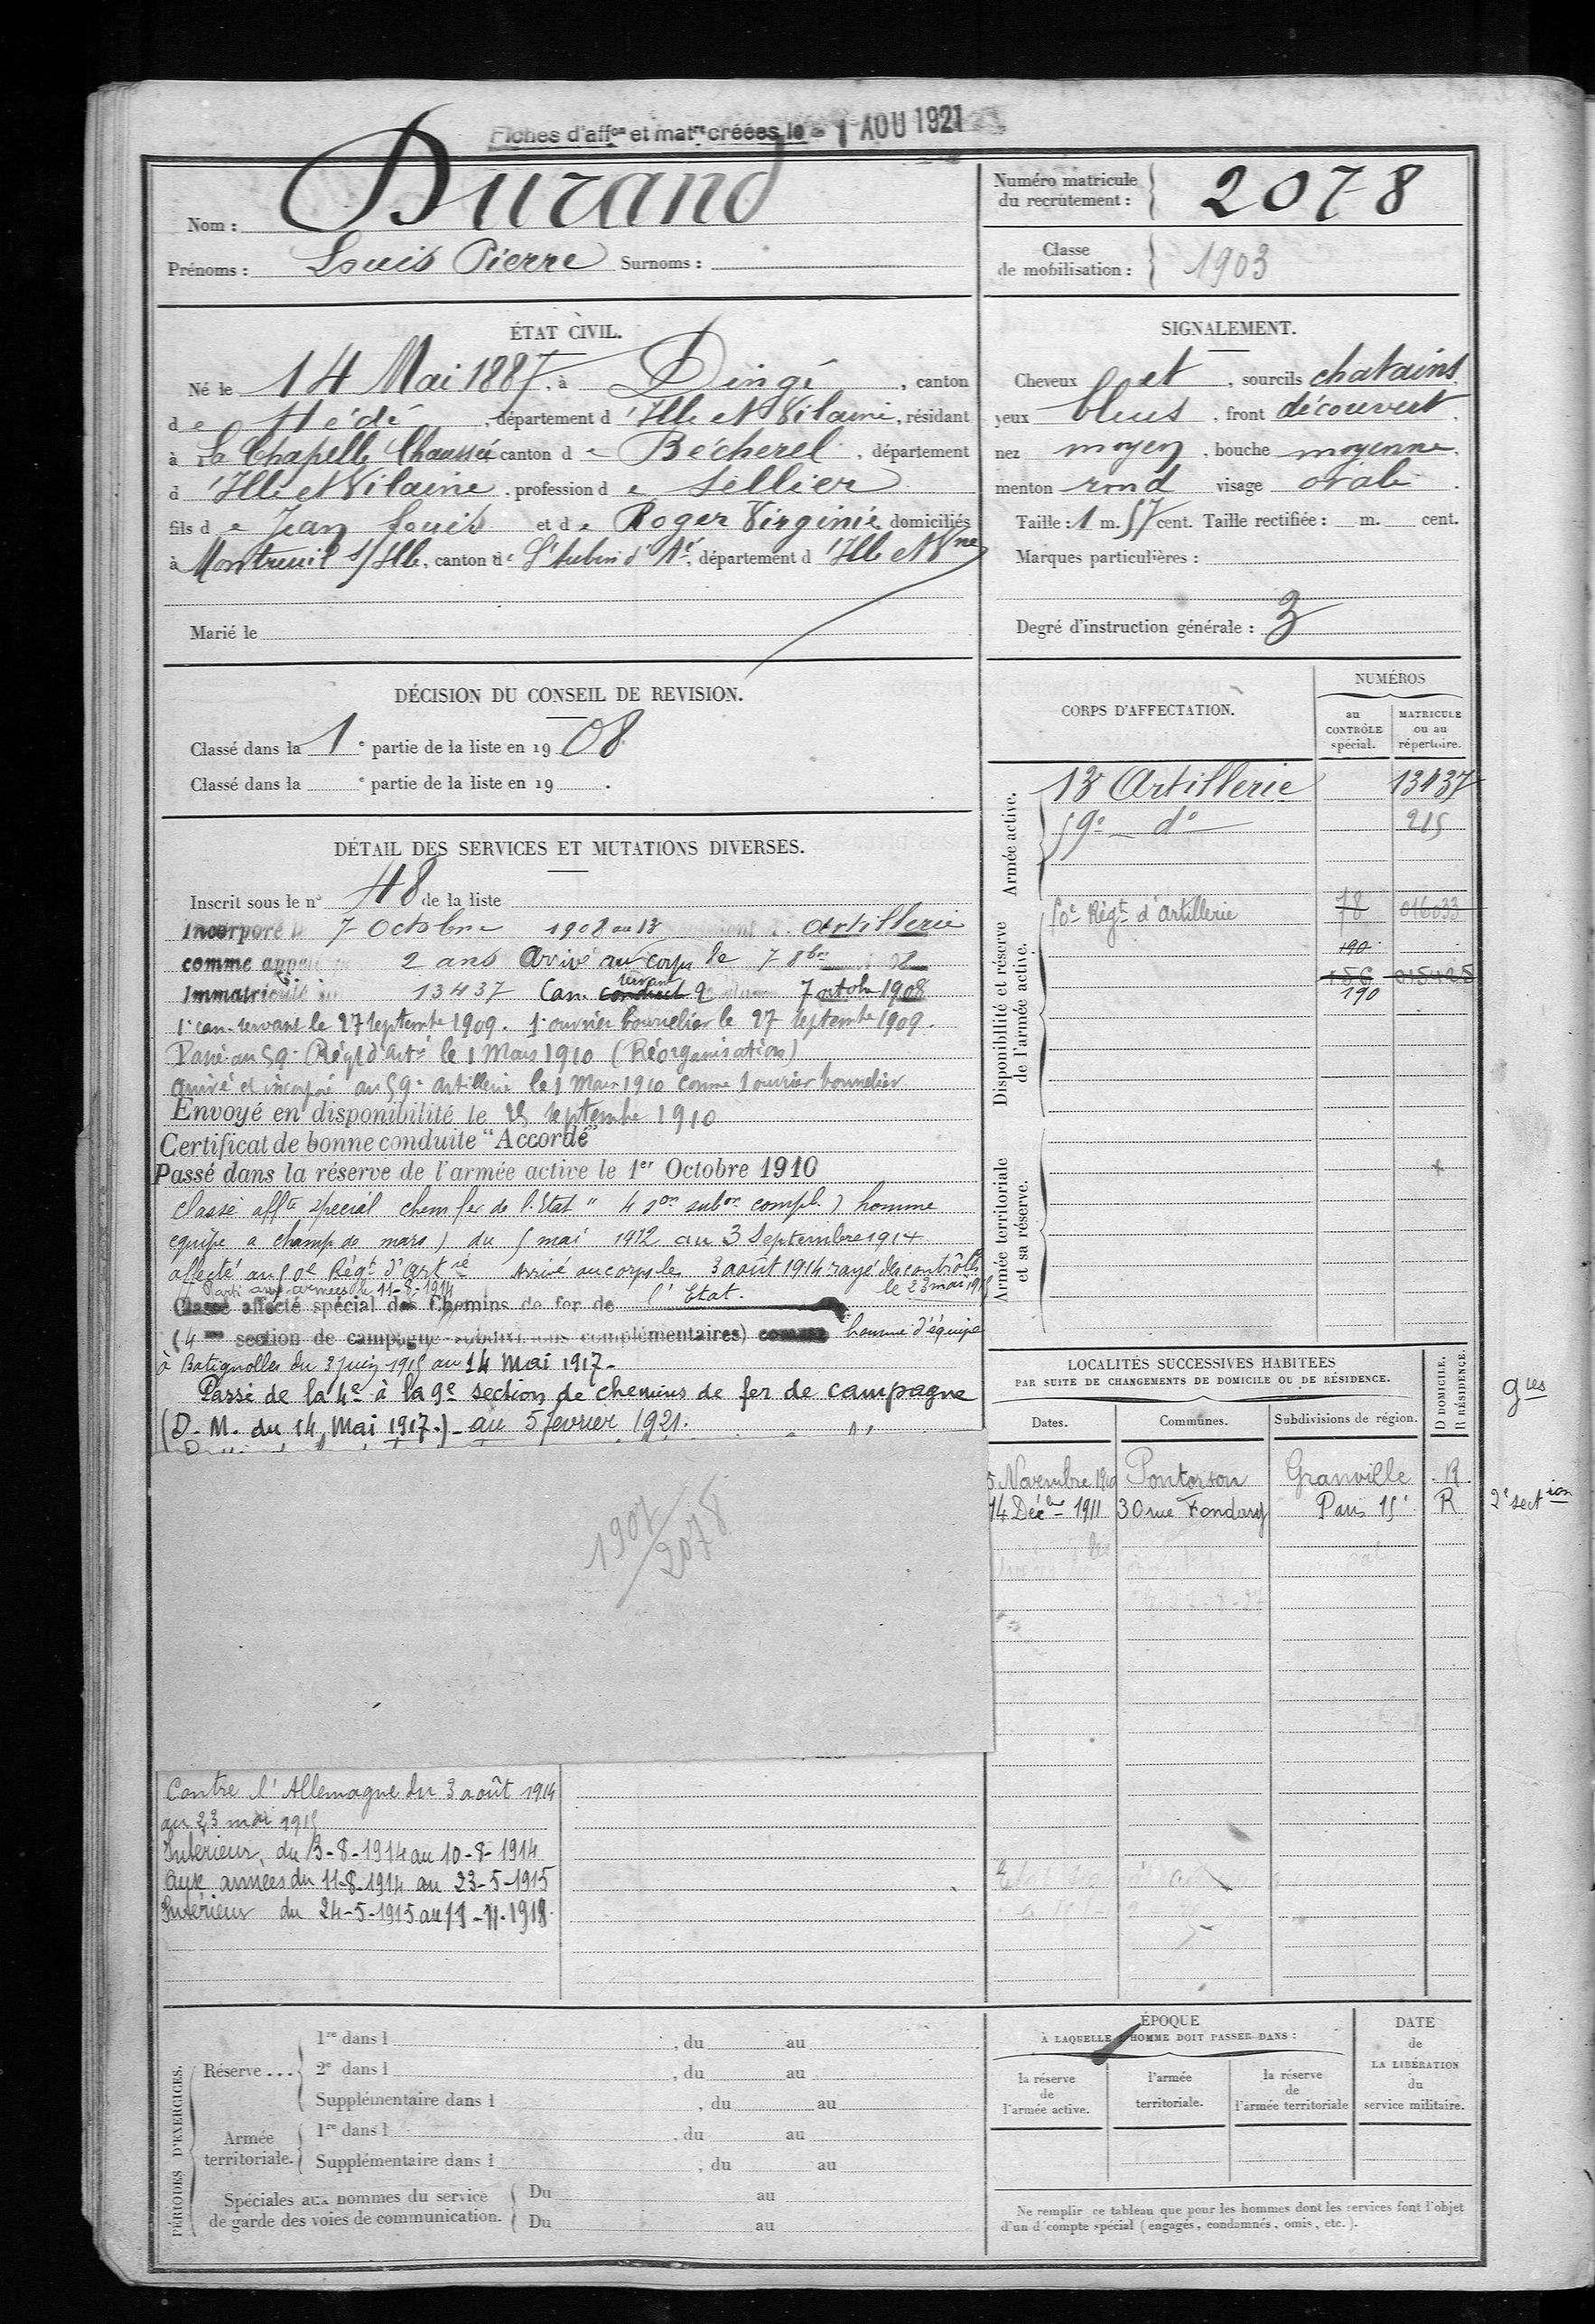 Fiches d'aff<sup>on</sup> et mat<sup>re</sup> créées le - 1 AOU 1921
Nom : Durand
Prénoms : Louis Pierre Surnoms :
Numéro matricule du recrutement : 2078
Classe de mobilisation : 1903
ÉTAT CIVIL.
Né le 14 Mai 1887, à Dingé, canton
de Hédé, département d'Ille et Vilaine, résidant
à La Chapelle Chaussée canton de Bécherel, département
d'Ille et Vilaine, profession de sellier
fils de Jean Louis et de Roger Virginie domiciliés
à Montreuil s/Ille, canton de St Aubin d'Aé, département d'Ille et Vne
Marié le
SIGNALEMENT.
Cheveux et, sourcils chatains,
yeux bleus, front découvert,
nez moyen, bouche moyenne,
menton rond visage ovale.
Taille : 1 m. 57 cent. Taille rectifiée : m. cent.
Marques particulières :
Degré d'instruction générale : 3
DÉCISION DU CONSEIL DE REVISION.
Classé dans la 1e partie de la liste en 1908
Classé dans la e partie de la liste en 19 .
DÉTAIL DES SERVICES ET MUTATIONS DIVERSES.
Inscrit sous le n° 48 de la liste
Incorporé le 7 Octobre 1908 au 13 Artillerie
comme appelé 2 ans Arrivé au corps le 7 8bre 08
servant
Immatriculé 13437 Can. conduct 2 7 octobre 1908
1er can. servant le 27 septembre 1909. 1er ouvrier bourrelier le 27 septembre 1909.
Passé au 59e Régt d'Artie le 1 Mars 1910 (Réorganisation)
arrivé et incorporé au 59e artillerie le 1 Mars 1910 comme 1 ouvrier bourrelier
Envoyé en disponibilité le 25 septembre 1910
Certificat de bonne conduite "Accordé"
Passé dans la réserve de l'armée active le 1er Octobre 1910
classé affté spécial chem fer de l'Etat " 4 son subon compl. ) homme
équipe a champ de mars) du 5 mai 1912 au 3 Septembre 1914
affecté au 50e Régt d'Artrie Arrivé au corps le 3 août 1914 rayé des contrôles
Parti aux armées le 11-8-1914 le 23 mai 1915
Classé affecté spécial des Chemins de fer de l'Etat.
(4me section de campagne subdivisions complémentaires) comme homme d'équipe
à Batignolles du 3 juin 1915 au 14 Mai 1917-
Passé de la 4e à la 9e section de chemins de fer de campagne
(D. M. du 14 Mai 1917.)- au 5 février 1921.
1907/2078
CORPS D'AFFECTATION.
NUMÉROS
au CONTRÔLE spécial.
MATRICULE ou au répertoire.
Armée active.
13e Artillerie 13437
59e do 215
Disponibilité et réserve de l'armée active.
50e Régt d'Artillerie 78 016033
190
186 015428
190
Armée territoriale et sa réserve.
LOCALITÉS SUCCESSIVES HABITEES
PAR SUITE DE CHANGEMENTS DE DOMICILE OU DE RÉSIDENCE.
Dates. Communes. Subdivisions de région. D DOMICILE. R RÉSIDENCE.
5 Novembre 1910 Pontorson Granville R
14 Décbre 1911 30 rue Fondary Paris 15e R
2e section
Contre l'Allemagne du 3 août 1914
au 23 mai 1915
Intérieur du 3-8-1914 au 10-8-1914
Aux armées du 11-8-1914 au 23-5-1915
Intérieur du 24-5-1915 au 11-11-1918.
PÉRIODES D'EXERCICES.
Réserve . . .
1re dans l , du au
2e dans l , du au
Supplémentaire dans l , du au
Armée territoriale.
1re dans l , du au
Supplémentaire dans l , du au
Spéciales aux hommes du service de garde des voies de communication.
Du au
Du au
ÉPOQUE
À LAQUELLE L'HOMME DOIT PASSER DANS :
la réserve de l'armée active.
l'armée territoriale.
la réserve de l'armée territoriale
DATE de LA LIBÉRATION du service militaire.
Ne remplir ce tableau que pour les hommes dont les services font l'objet
d'un décompte spécial (engagés, condamnés, omis, etc.).